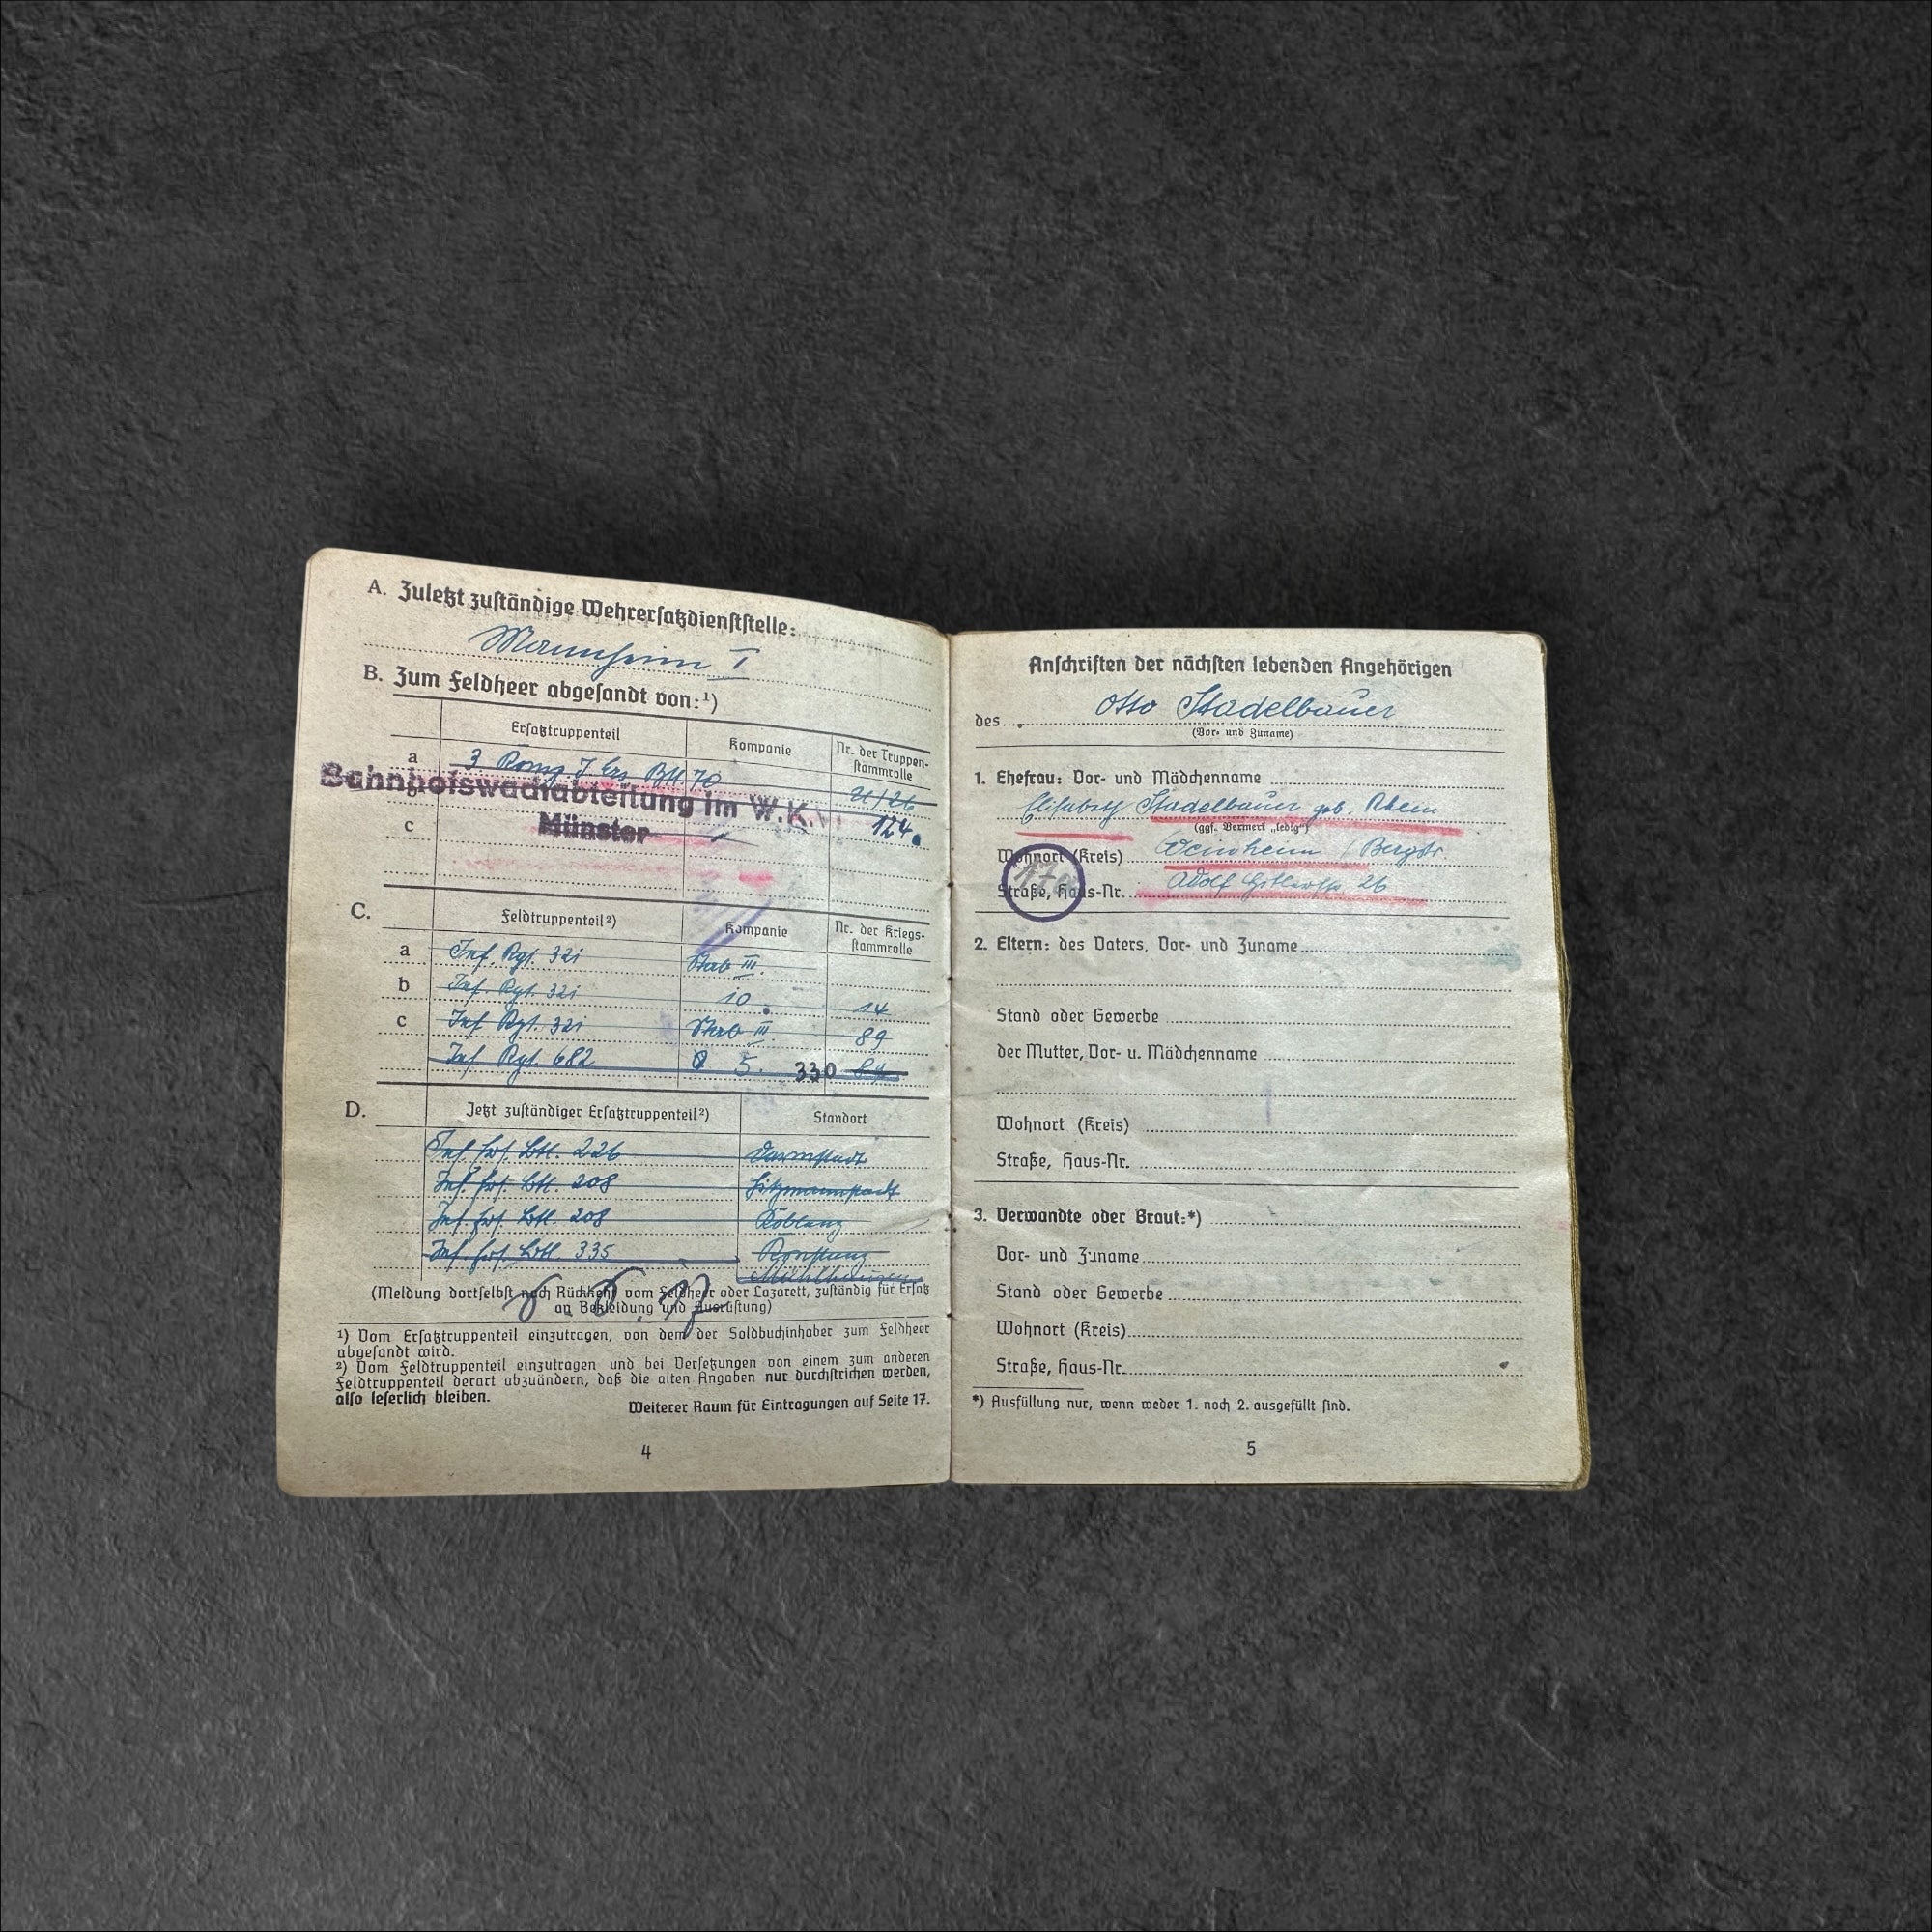 A. Zuletzt zuständige Wehrersatzdienststelle:
Mannheim I
B. Zum Feldheer abgesandt von:¹)
Ersatztruppenteil Kompanie Nr. der Truppen-
stammrolle
a 3 70 21/26
b
Bahnhofswachabteilung im W.K.VI 124.
Münster
c
C. Feldtruppenteil²) Kompanie Nr. der Kriegs-
stammrolle
a Inf. Rgt. 321 Stab III.
b Inf. Rgt. 321 10. 14
c Inf. Rgt. 321 Stab III. 89
Inf. Rgt. 682 5. 330
D. Jetzt zuständiger Ersatztruppenteil²) Standort
Inf. Ers. Btl. 226 Darmstadt
Inf. Ers. Btl. 208 Litzmannstadt
Inf. Ers. Btl. 208 Koblenz
Inf. Ers. Btl. 335 Konstanz
Mühlhausen
(Meldung dortselbst nach Rückkehr vom Feldheer oder Lazarett, zuständig für Ersatz
an Bekleidung und Ausrüstung)
¹) Vom Ersatztruppenteil einzutragen, von dem der Soldbuchinhaber zum Feldheer
abgesandt wird.
²) Vom Feldtruppenteil einzutragen und bei Versetzungen von einem zum anderen
Feldtruppenteil derart abzuändern, daß die alten Angaben nur durchstrichen werden,
also leserlich bleiben.
Weiterer Raum für Eintragungen auf Seite 17.
4
Anschriften der nächsten lebenden Angehörigen
des Otto Stadelbauer
(Vor- und Zuname)
1. Ehefrau: Vor- und Mädchenname
Elisabeth Stadelbauer geb. Rhein
(ggf. Vermerk „ledig")
Wohnort (Kreis) Weinheim / Bergstr.
Straße, Haus-Nr. Adolf Hitlerstr. 26
17a
2. Eltern: des Vaters, Vor- und Zuname
Stand oder Gewerbe
der Mutter, Vor- u. Mädchenname
Wohnort (Kreis)
Straße, Haus-Nr.
3. Verwandte oder Braut:*)
Vor- und Zuname
Stand oder Gewerbe
Wohnort (Kreis)
Straße, Haus-Nr.
*) Ausfüllung nur, wenn weder 1. noch 2. ausgefüllt sind.
5